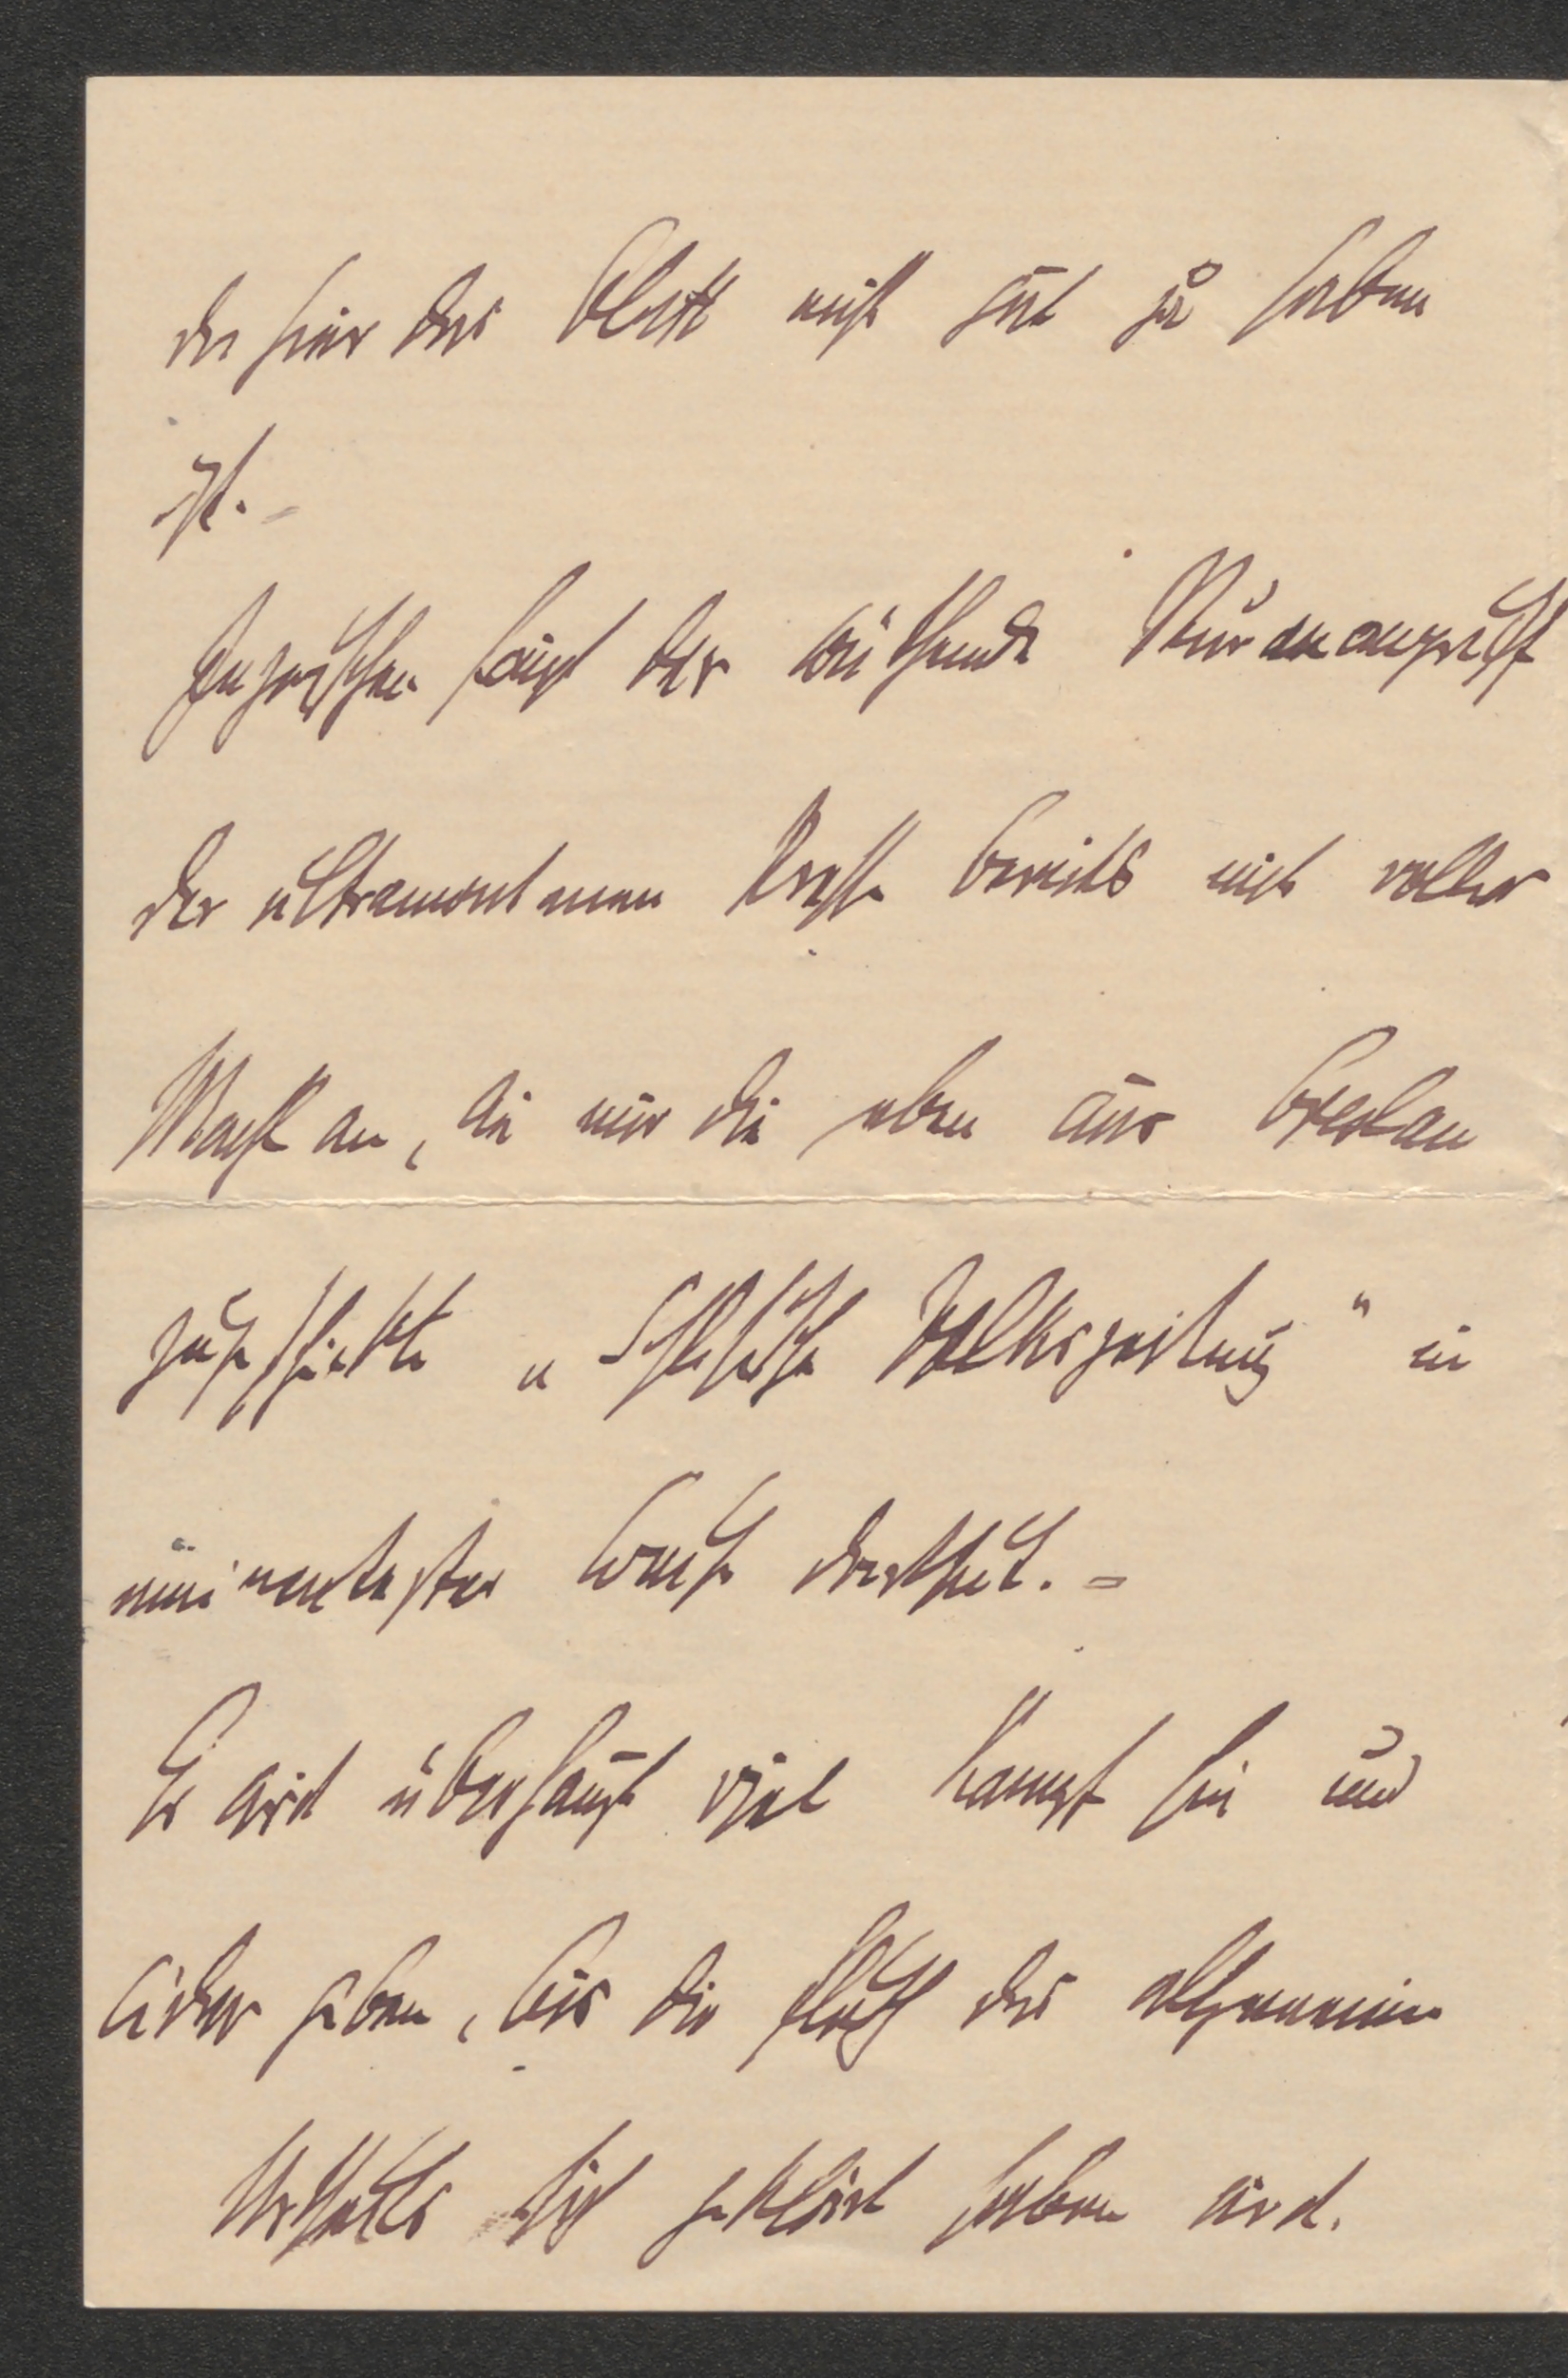 da hier das Blatt nicht gut zu haben
ist. –
Inzwischen fängt der wüthende Sturmangriff
der ultramontanen Presse bereits mit voller
Macht an, wie mir die eben aus Breslau
zugeschickte „Schlesische Volkszeitung" in
Weise darthut. –
Es wird überhaupt viel Kampf hin und
wider geben, bis die Fluth des allgemeinen
Urtheils sich geklärt haben wird.